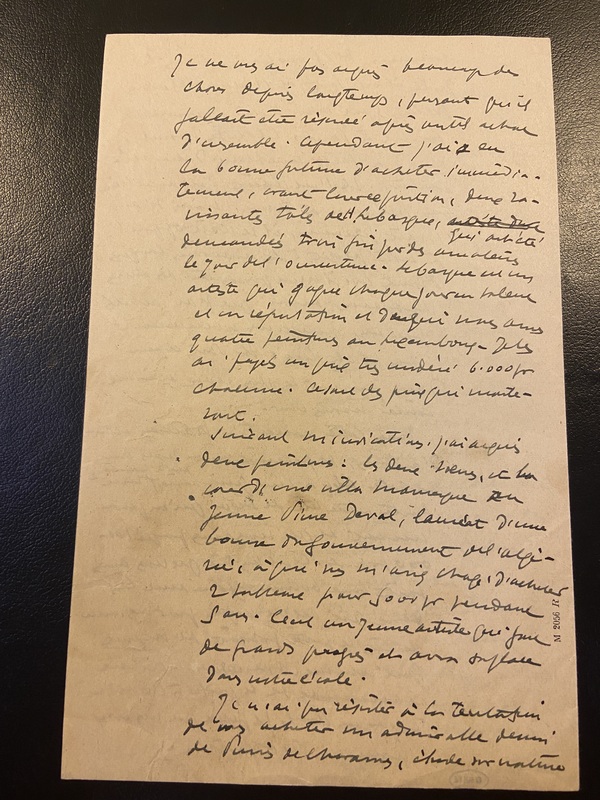 Je ne vous ai pas acquis beaucoup de
choses depuis longtemps, pensant qu'il
fallait être réservé après votre achat
d'ensemble. Cependant j'ai eu
la bonne fortune d'acheter immédia-
tement, avant l'exposition, deux ra-
vissantes toiles de Lebasque,
qui ont été
demandés trois fois par des amateurs
le jour de l'ouverture. Lebasque est un
artiste qui gagne chaque jour en valeur
et en réputation et de qui nous avons
quatre peintures au Luxembourg. Je les
ai payés un prix très modéré 6.000 fr
chacune. Ce sont des prix qui monte-
ront.
Suivant vos indications j'ai acquis
deux peintures : les deux et la
cour d'une villa mauresque du
jeune Pierre Deval, lauréat d'une
bourse du gouvernement de l'Algé-
rie, à qui vous m'aviez chargé d'acheter
2 tableaux pour 500 fr pendant
5 ans. C'est un jeune artiste qui fait
de grands progrès et aura sa place
dans notre école.
Je n'ai pu résister à la tentation
de vous acheter un admirable dessin
de Puvis de Chavannes, étude sur nature
M 2056 R